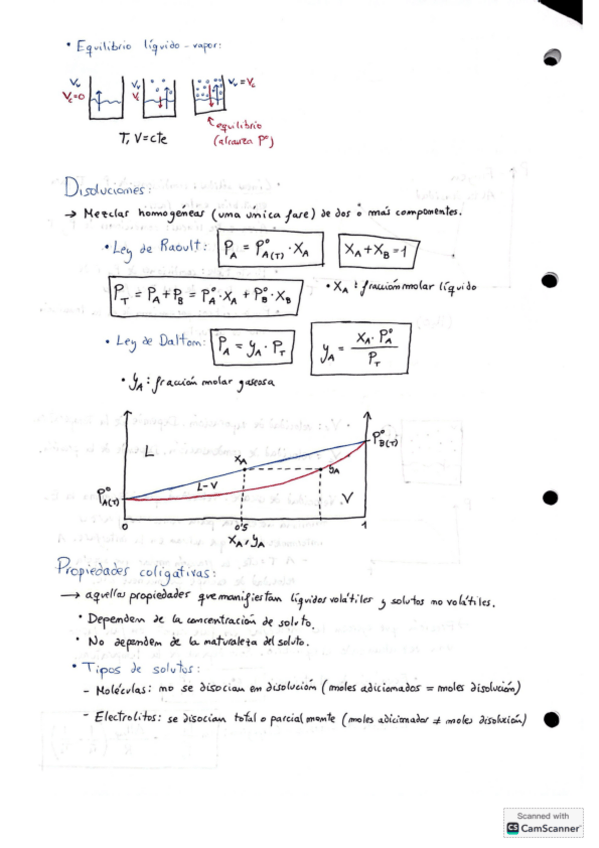 • Equilibrio líquido - vapor:
Vv Vc=0 Vv Vc Vv = Vc
T, V=cte
equilibrio
(alcanza P°)
Disoluciones:
→ Mezclar homogéneas (una unica fase) de dos o más componentes.
• Ley de Raoult: P_A = P°_A(T) · X_A X_A + X_B = 1
P_T = P_A + P_B = P°_A · X_A + P°_B · X_B • X_A : fracción molar líquido
• Ley de Dalton: P_A = y_A · P_T y_A = X_A · P°_A / P_T
• y_A : fracción molar gaseosa
P°_B(T)
L
X_A y_A
L-V
P°_A(T) V
0 0'5 1
X_A, y_A
Propiedades coligativas:
→ aquellas propiedades que manifiestan líquidos volátiles y solutos no volátiles.
• Dependen de la concentración de soluto.
• No dependen de la naturaleza del soluto.
• Tipos de solutos:
- Moléculas: no se disocian en disolución (moles adicionados = moles disolución)
- Electrolitos: se disocian total o parcialmente (moles adicionador ≠ moles disolución)
Scanned with
CS CamScanner